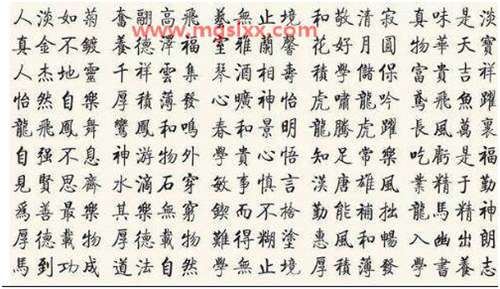 www.mgsixx.com
人淡如菊 奮翮高飛 藝無止境 和敬清寂 真味是淡
真金不鍍 養德澤福 室雅蘭馨 花好月圓 物華天寶
人杰地靈 千祥雲集 琴酒相壽 積學儲保 富貴吉祥
怡然自樂 厚積薄發 心曠神怡 虎嘯龍吟 鳶飛魚躍
龍飛鳳舞 鸞鳳和鳴 春和景明 龍騰虎躍 長風萬裏
自强不息 神游物外 學貴心悟 知足常樂 吃虧是福
見賢思齋 水滴石穿 敏事慎言 漢唐雄風 業精于勤
爲善最樂 其樂無窮 鍥而不捨 勤能補拙 龍馬精神
厚德載物 厚德載物 難得糊塗 惠風和暢 入幽出朗
馬到功成 道法自然 學無止境 厚積薄發 學書養志